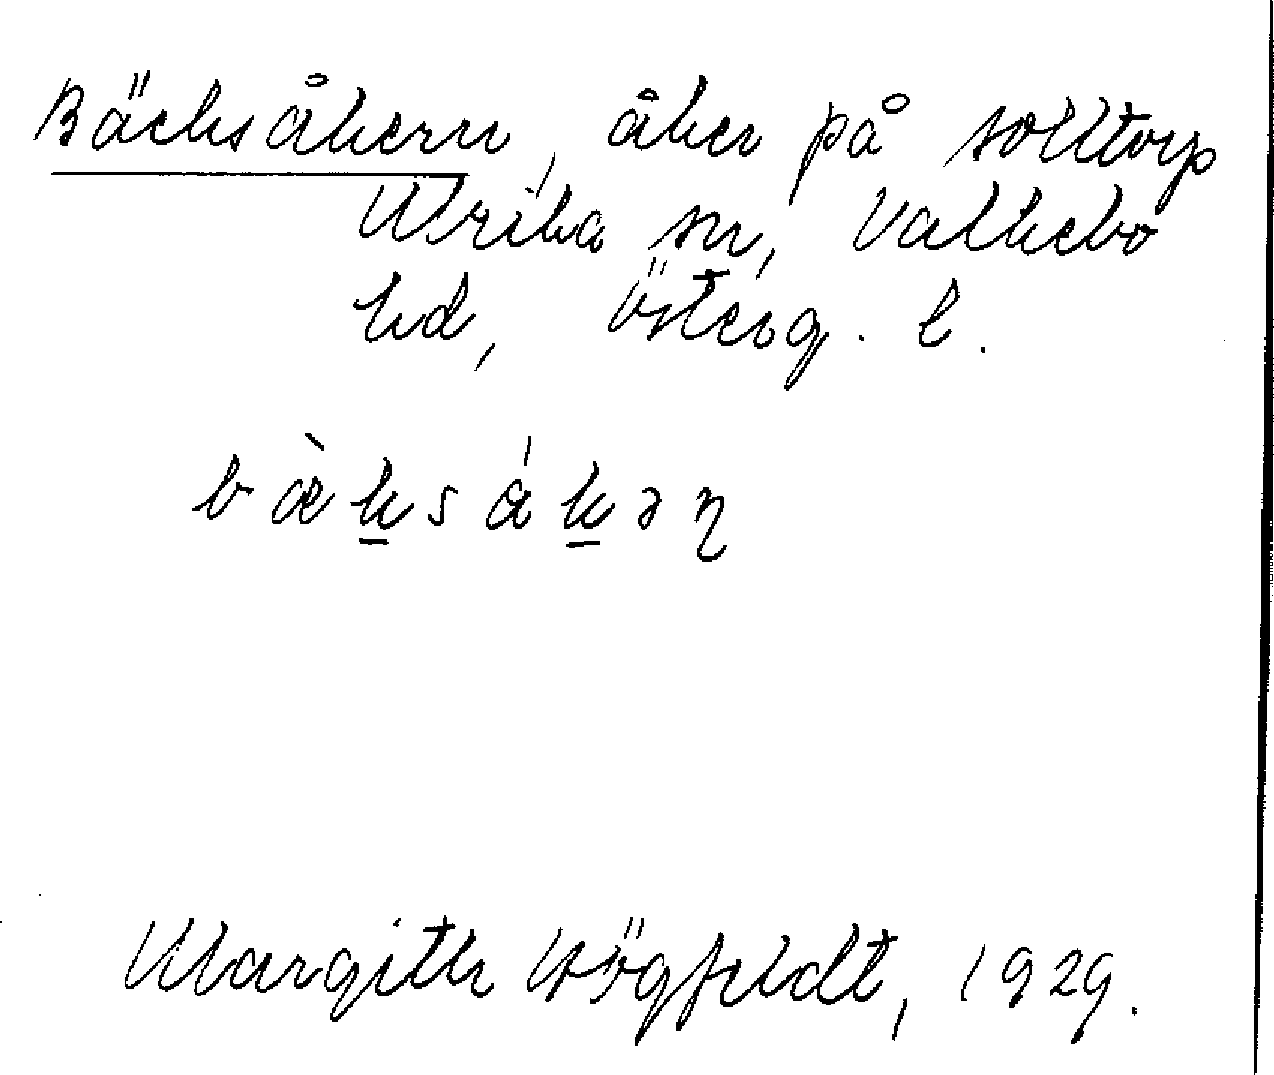 Bäcksåkern, åker på solltorp
Ulrika sn, Valkebo
hd, Österg. l.
bæ̀k̠sák̠əɳ
Margith Högfeldt, 1929.